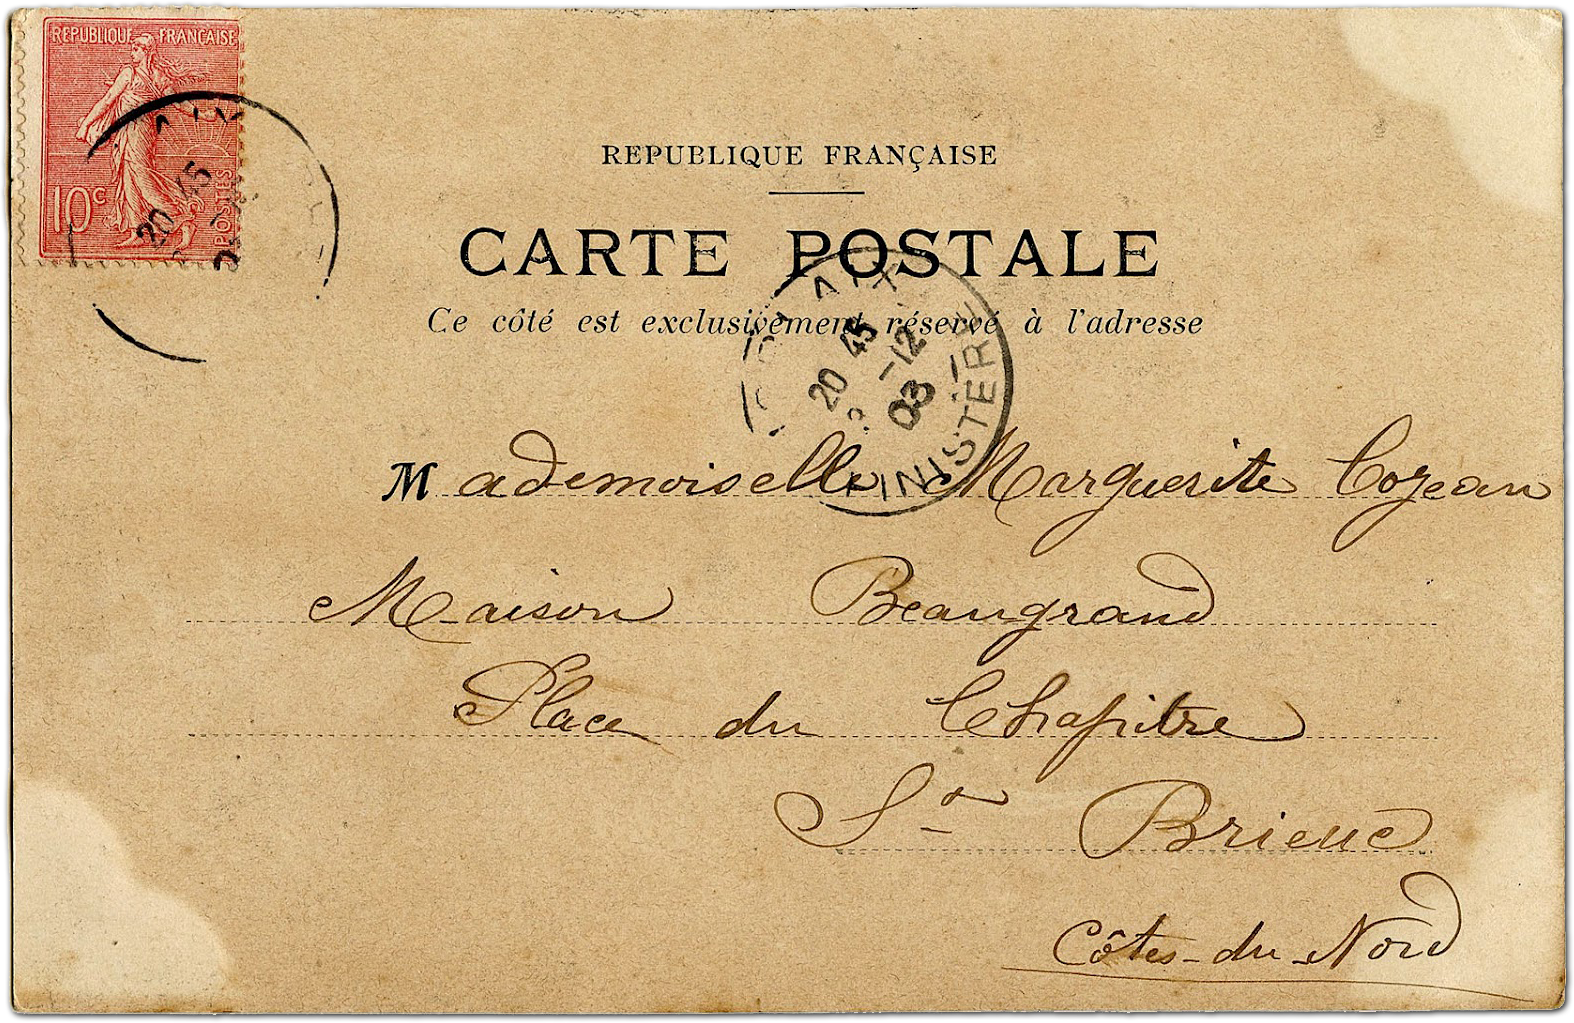 REPUBLIQUE FRANÇAISE
10c
POSTES
20 45
REPUBLIQUE FRANÇAISE
CARTE POSTALE
Ce côté est exclusivement réservé à l'adresse
20 45
-12
03
FINISTÈRE
Mademoiselle Marguerite Cozean
Maison Beaugrand
Place du Chapitre
St Brieuc
Côtes-du-Nord